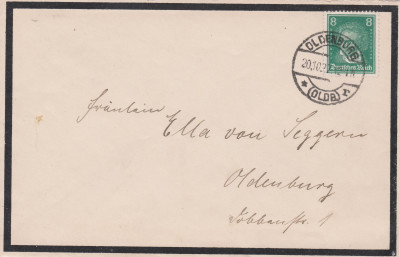 8 8
Deutsches Reich
OLDENBURG
20.10.2
(OLDB)
Fräulein
Ella von Seggern
Oldenburg
1